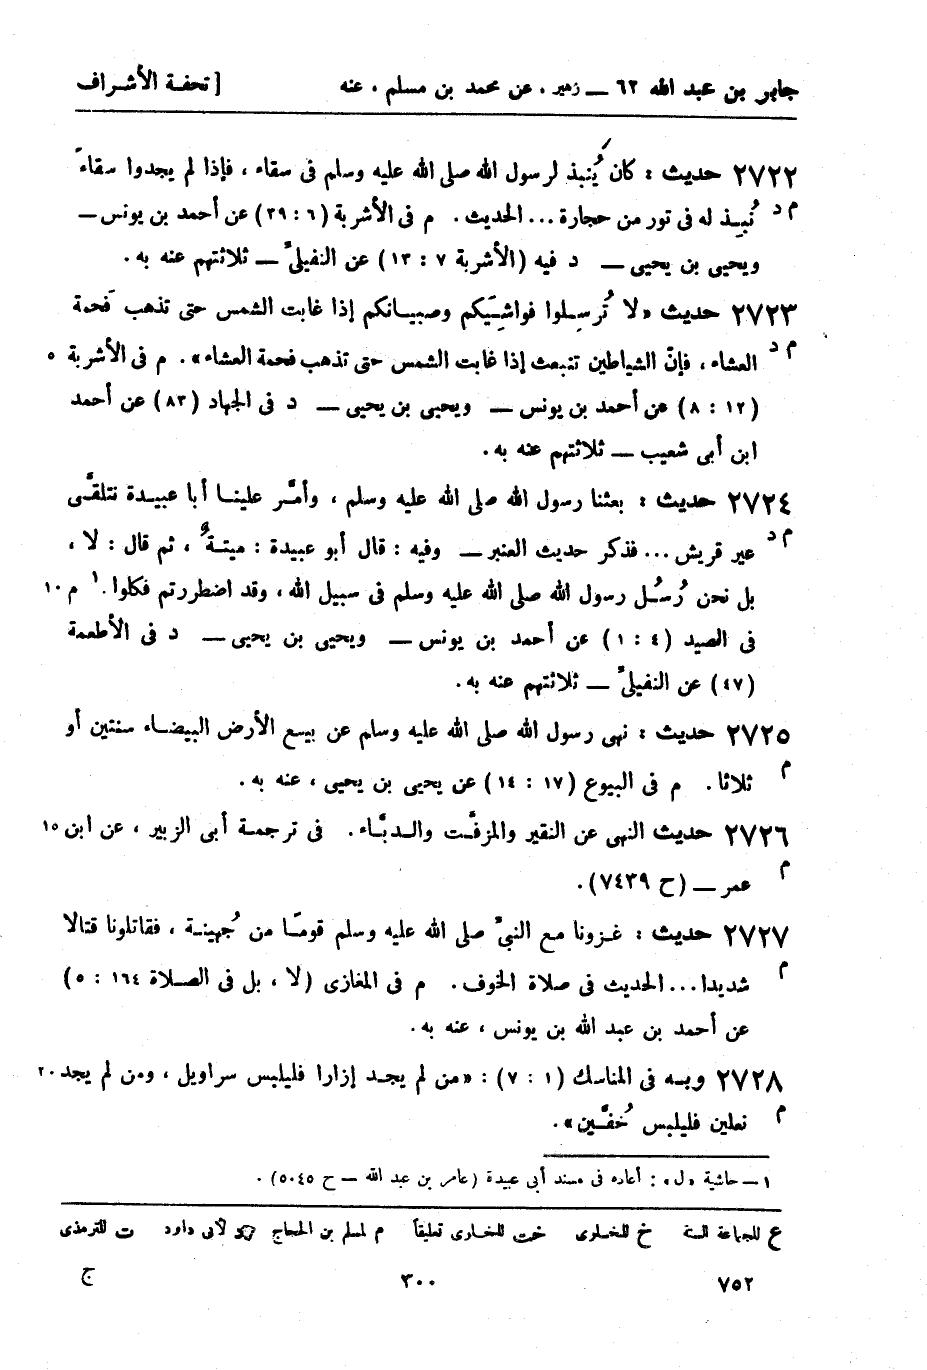 جابر بن عبد الله ٦٢ — زهير ، عن محمد بن مسلم ، عنه [ تحفة الأشراف
٢٧٢٢ حديث : كان يُنبذ لرسول الله صلى الله عليه وسلم فى سقاء ، فإذا لم يجدوا سقاءً
م د نُبِيذ له فى تور من حجارة ... الحديث . م فى الأشربة (٦ : ٢٩) عن أحمد بن يونس —
ويحيى بن يحيى — د فيه (الأشربة ٧ : ١٣) عن النفيلىّ — ثلاثتهم عنه به .
٢٧٢٣ حديث «لا تُرسِلوا فواشيَكم وصبيانكم إذا غابت الشمس حتى تذهب فحمة
م د العشاء ، فإنّ الشياطين تنبعث إذا غابت الشمس حتى تذهب فحمة العشاء» . م فى الأشربة ٥
(١٢ : ٨) عن أحمد بن يونس — ويحيى بن يحيى — د فى الجهاد (٨٣) عن أحمد
ابن أبى شعيب — ثلاثتهم عنه به .
٢٧٢٤ حديث : بعثنا رسول الله صلى الله عليه وسلم ، وأمَّر علينا أبا عبيدة نتلقَّى
م د عير قريش ... فذكر حديث العنبر — وفيه : قال أبو عبيدة : ميتةٌ ، ثم قال : لا ،
بل نحن رُسُل رسول الله صلى الله عليه وسلم فى سبيل الله ، وقد اضطررتم فكلوا .١ م ١٠
فى الصيد (٤ : ١) عن أحمد بن يونس — ويحيى بن يحيى — د فى الأطعمة
(٤٧) عن النفيلىّ — ثلاثتهم عنه به .
٢٧٢٥ حديث : نهى رسول الله صلى الله عليه وسلم عن بيع الأرض البيضاء سنتين أو
م ثلاثا . م فى البيوع (١٧ : ١٤) عن يحيى بن يحيى ، عنه به .
٢٧٢٦ حديث النهى عن النقير والمزفَّت والدبَّاء . فى ترجمة أبى الزبير ، عن ابن ١٥
م عمر — (ح ٧٤٣٩) .
٢٧٢٧ حديث : غزونا مع النبىّ صلى الله عليه وسلم قومًا من جُهينة ، فقاتلونا قتالا
م شديدا ... الحديث فى صلاة الخوف . م فى المغازى (لا ، بل فى الصلاة ١٦٤ : ٥)
عن أحمد بن عبد الله بن يونس ، عنه به .
٢٧٢٨ وبه فى المناسك (١ : ٧) : «من لم يجد إزارا فليلبس سراويل ، ومن لم يجد ٢٠
م نعلين فليلبس خُفَّين» .
١ — حاشية «ل» : أعاده فى مسند أبى عبيدة (عامر بن عبد الله — ح ٥٠٤٥) .
ع للجماعة الستة خ للبخارى خت للبخارى تعليقاً م لمسلم بن الحجاج د لأبى داود ت للترمذى
٧٥٢ ٣٠٠ ج